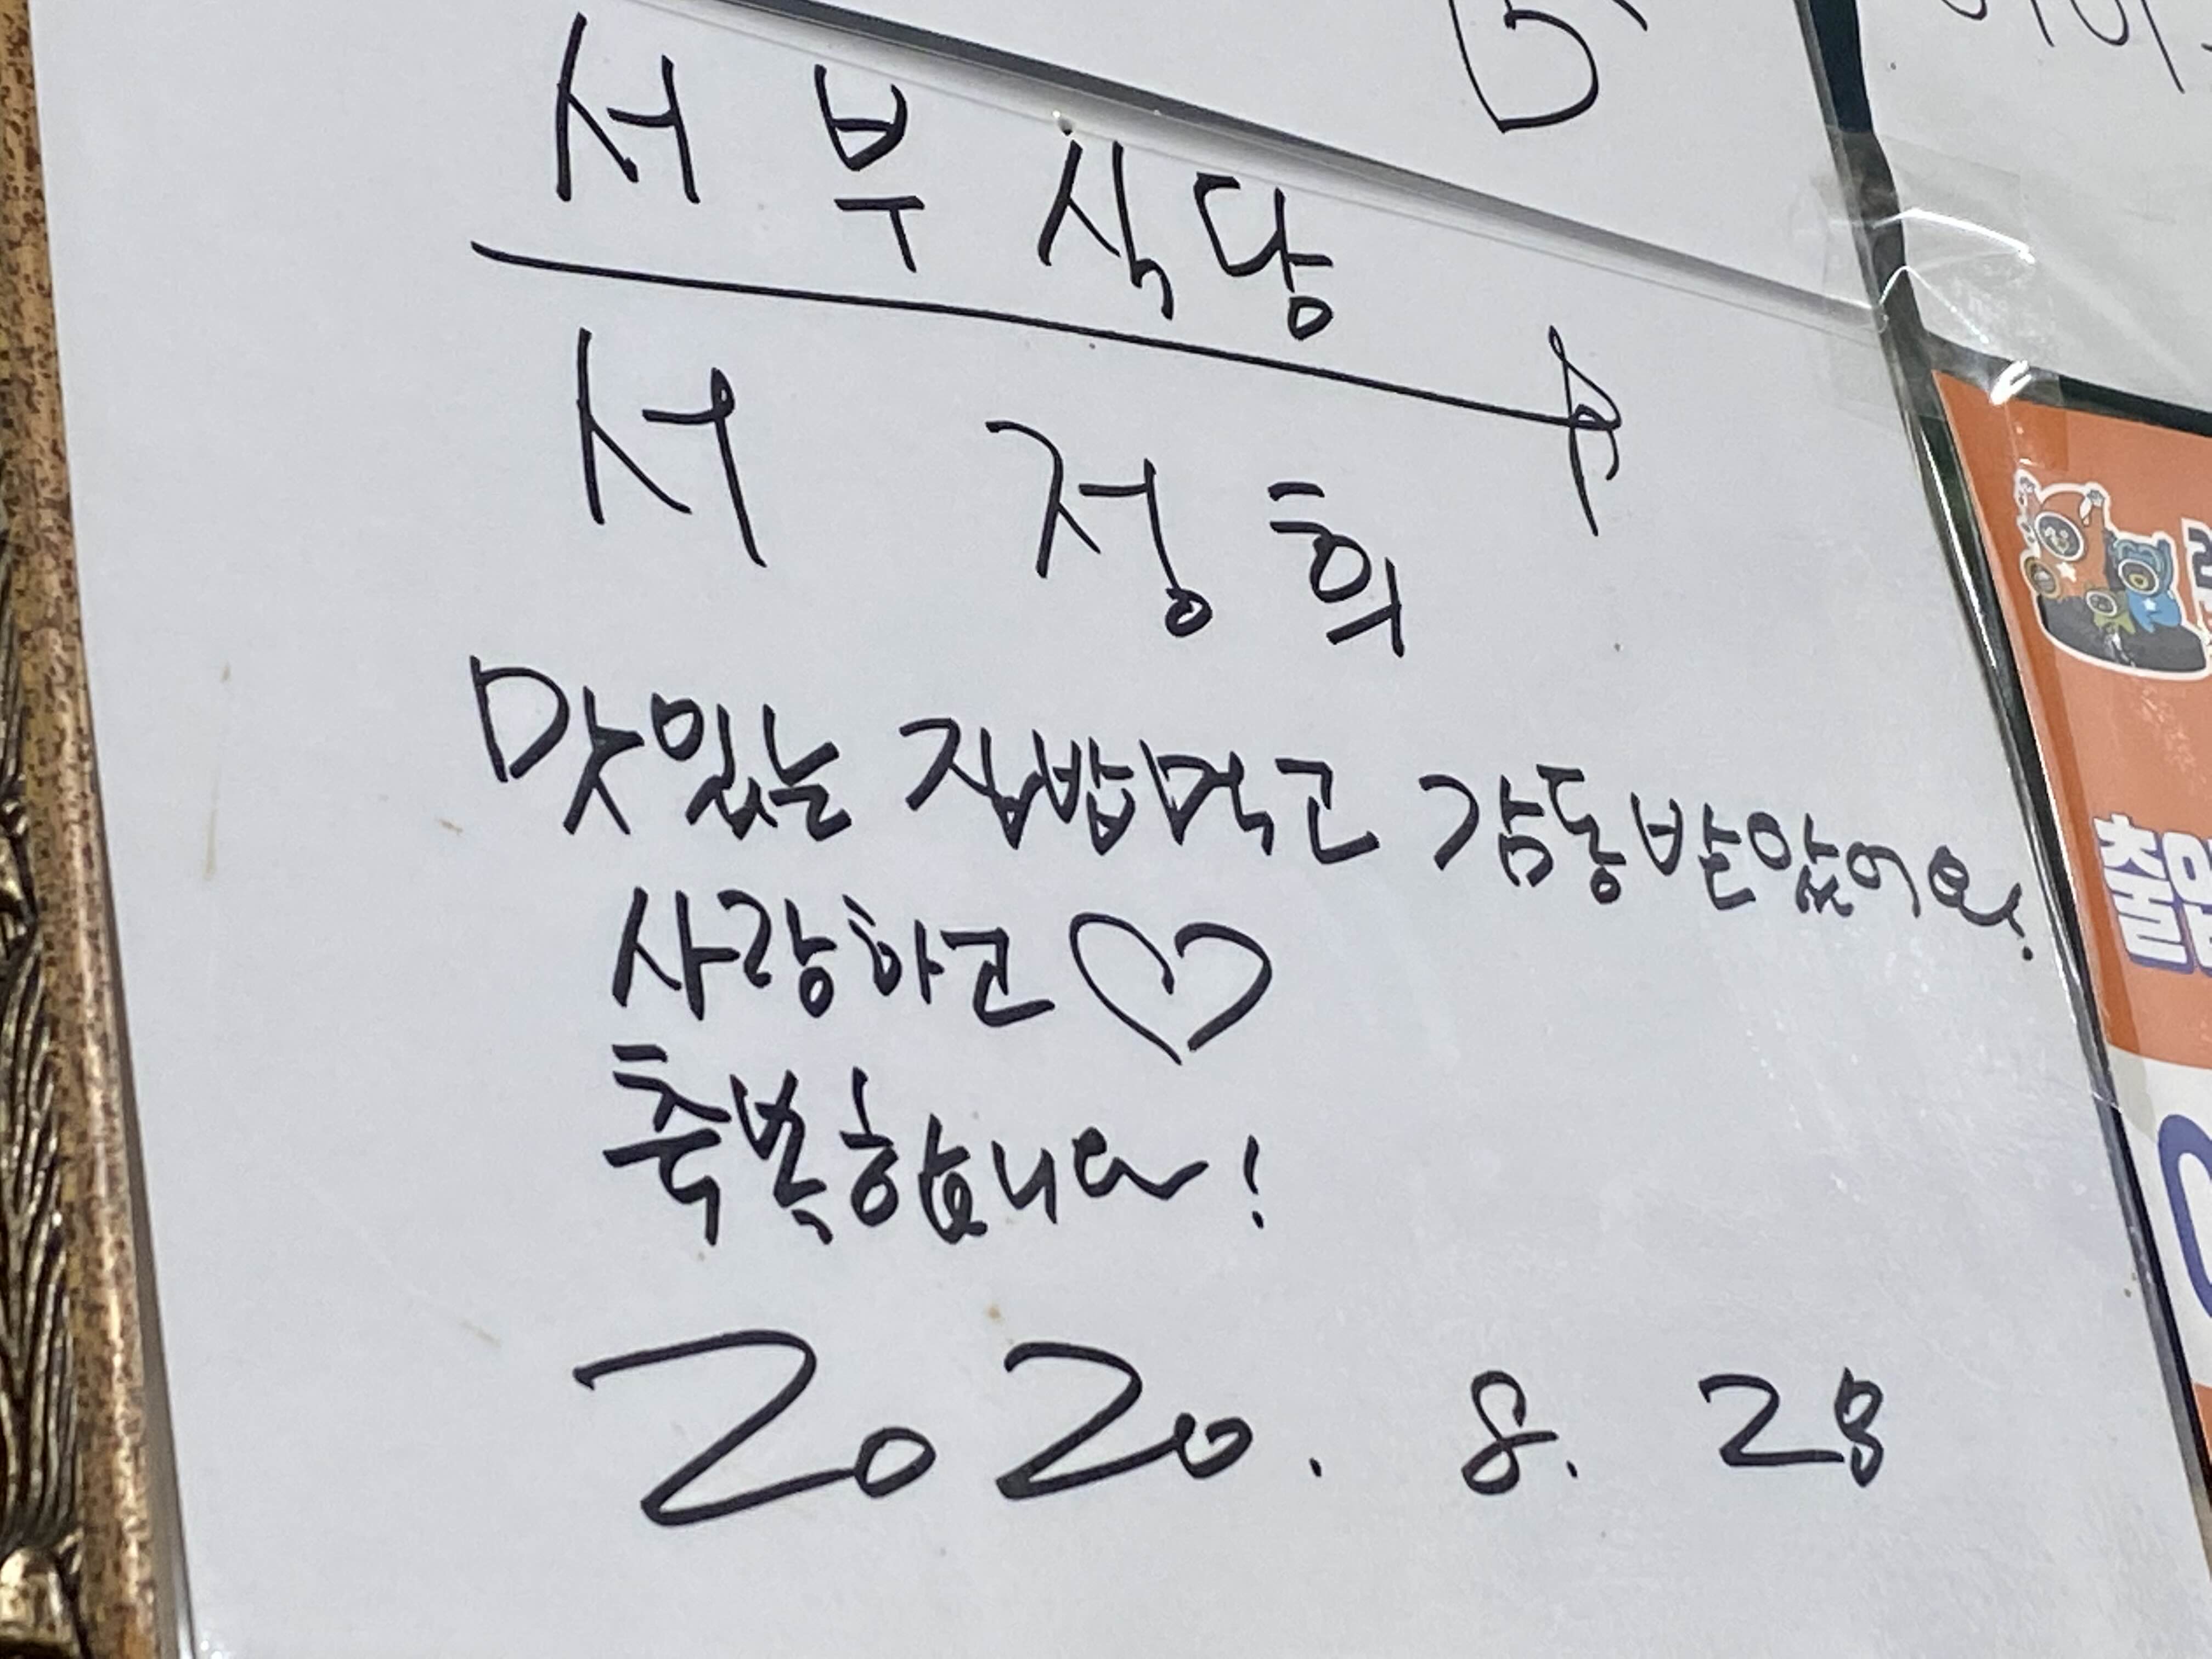 서부식당
서정희
맛있는 집밥먹고 감동받았어요.
사랑하고♡
축복합니다!
2020. 8. 28
출